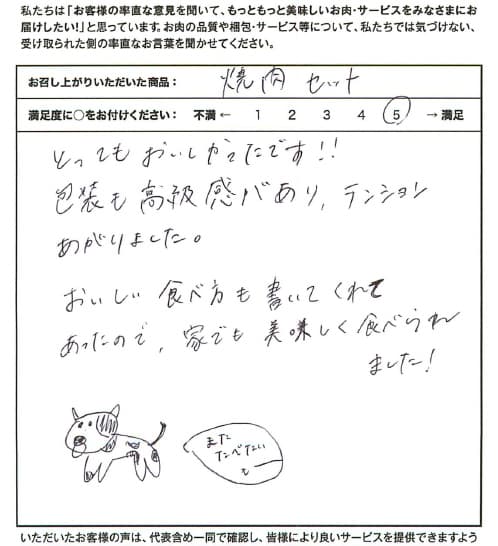 私たちは「お客様の率直な意見を聞いて、もっともっと美味しいお肉・サービスをみなさまにお
届けしたい!」と思っています。お肉の品質や梱包・サービス等について、私たちでは気づけない、
受け取られた側の率直なお言葉を聞かせてください。
お召し上がりいただいた商品： 焼肉 セット
満足度に○をお付けください： 不満 ← 1 2 3 4 5 → 満足
とってもおいしかったです!!
包装も高級感があり、テンション
あがりました。
おいしい食べ方も書いてくれて
あったので、家でも美味しく食べられ
ました!
また
たべたい
も
いただいたお客様の声は、代表含め一同で確認し、皆様により良いサービスを提供できますよう